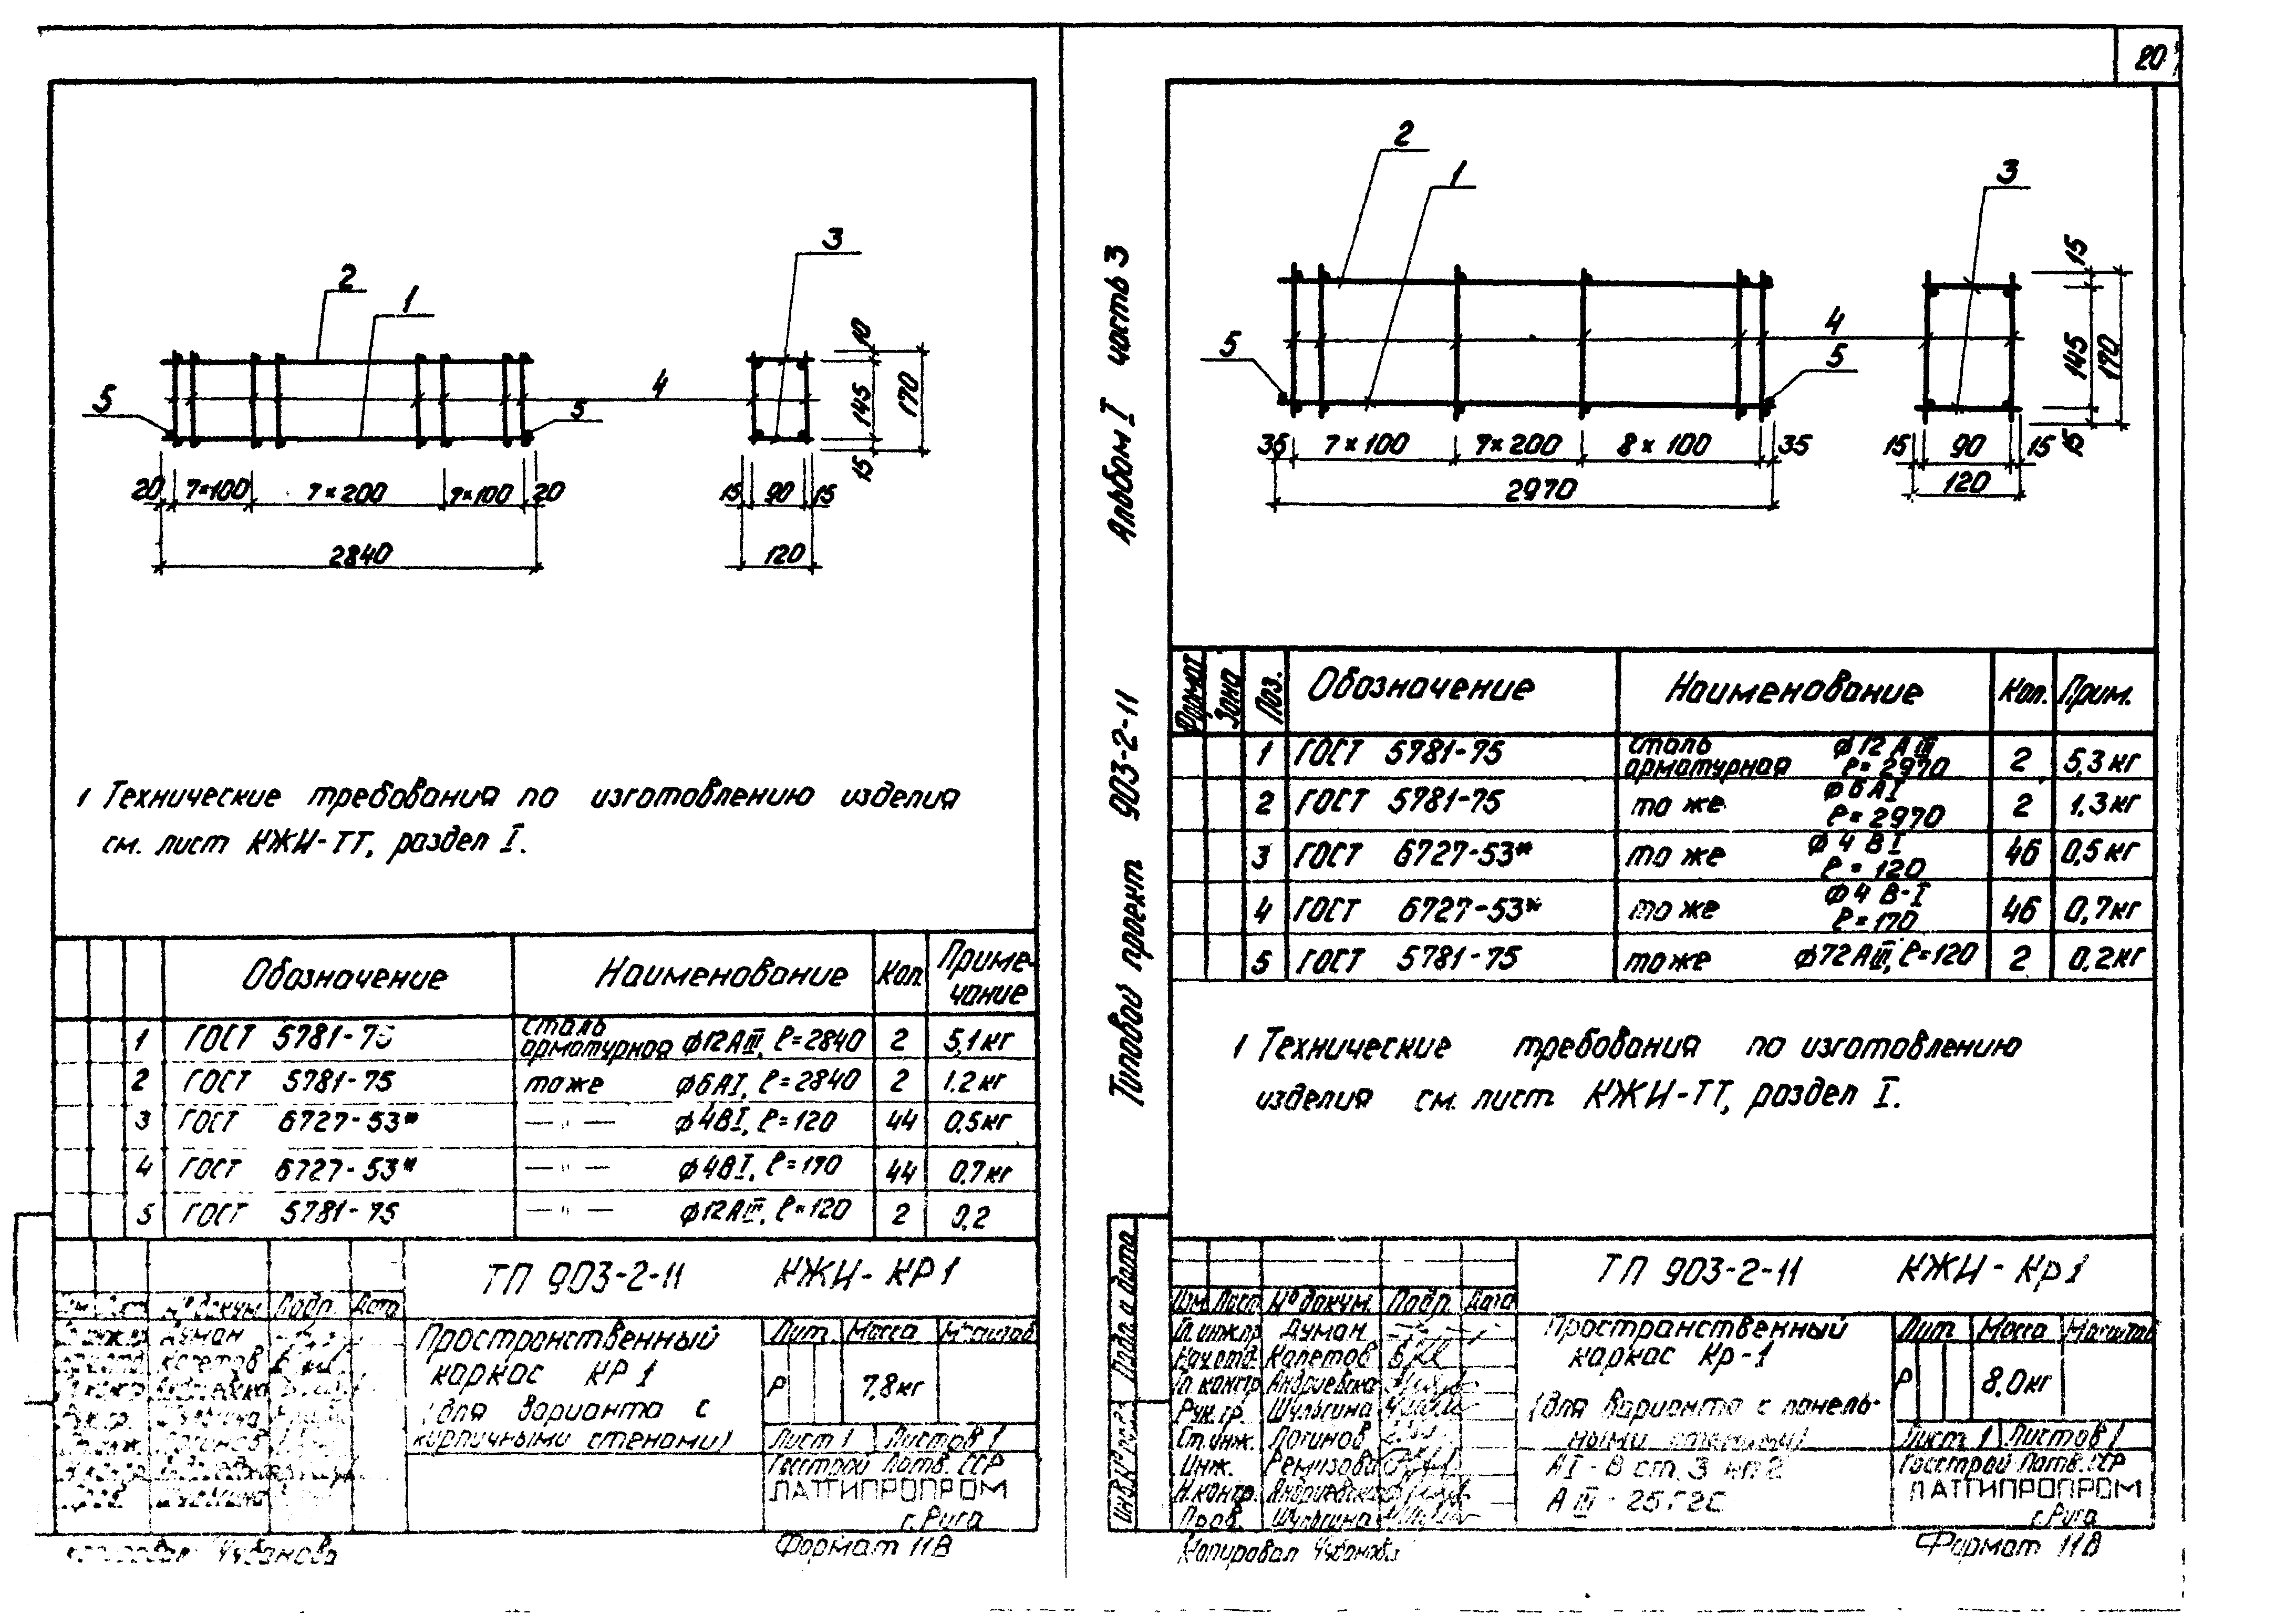 20
2
1
3
5
4
5
10
145
170
15
20 7×100 7×200 7×100 20
2840
15 90 15
120
1 Технические требования по изготовлению изделия
см. лист КЖИ-ТТ, раздел I.
Обозначение Наименование Кол. Приме-
чание
1 ГОСТ 5781-75 сталь арматурная ф12АIII, ℓ=2840 2 5,1кг
2 ГОСТ 5781-75 то же ф6АI, ℓ=2840 2 1.2кг
3 ГОСТ 6727-53* —"— ф4ВI, ℓ=120 44 0.5кг
4 ГОСТ 6727-53* —"— ф4ВI, ℓ=170 44 0.7кг
5 ГОСТ 5781-75 —"— ф12АIII, ℓ=120 2 0.2
ТП 903-2-11 КЖИ-КР1
№ докум. Подр. Дата
Думан
Капетов
Пространственный
каркас КР1
(для варианта с
кирпичными стенами)
Лит. Масса Масштаб
Р 7,8кг
Лист 1 Листов 1
Госстрой Латв. ССР
ЛАТГИПРОПРОМ
г. Рига
Копировал Чубанова
Формат 11В
Альбом I часть 3
Типовой проект 903-2-11
2
1
3
5
4
5
15
145
170
15
35 7×100 7×200 8×100 35
2970
15 90 15
120
Формат Зона Поз. Обозначение Наименование Кол. Прим.
1 ГОСТ 5781-75 сталь арматурная ф12АIII ℓ=2970 2 5,3кг
2 ГОСТ 5781-75 то же ф6АI ℓ=2970 2 1.3кг
3 ГОСТ 6727-53* то же ф4ВI ℓ=120 46 0,5кг
4 ГОСТ 6727-53* то же ф4В-I ℓ=170 46 0,7кг
5 ГОСТ 5781-75 то же ф72АIII, ℓ=120 2 0.2кг
1 Технические требования по изготовлению
изделия см. лист КЖИ-ТТ, раздел I.
Подп. и дата
ТП 903-2-11 КЖИ-Кр1
Изм. Лист № докум. Подр. Дата
Гл.инж.пр. Думан
Нач.отд. Капетов
Гл. констр. Андриевска
Рук.гр. Шульгина
Ст.инж. Логинов
Инж. Ремизова
Н.контр. Андриевска
Пров. Шульгина
Пространственный
каркас Кр-1
(для варианта с панель-
ными стенами)
АI-В ст.3 кп2
АIII-25Г2С
Лит. Масса Масштаб
Р 8,0кг
Лист 1 Листов 1
Госстрой Латв. ССР
ЛАТГИПРОПРОМ
г. Рига
Копировал Чубанова
Формат 11В